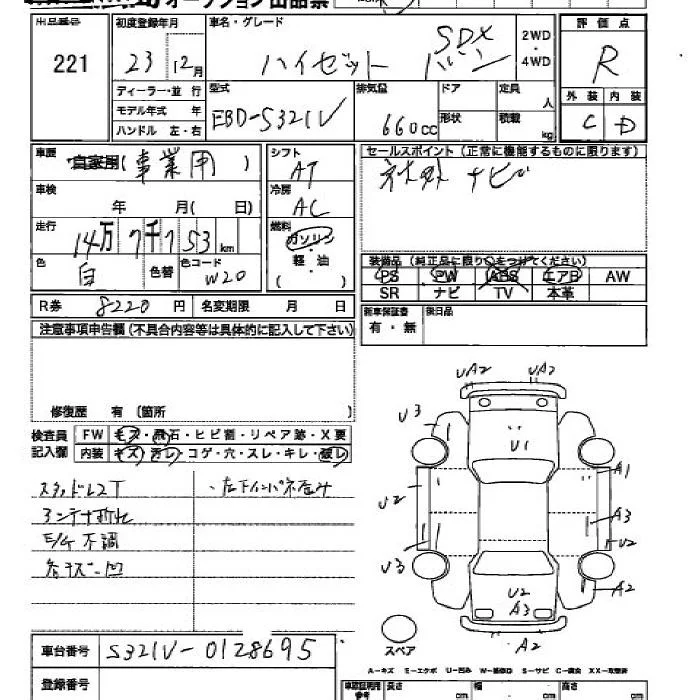 オークション 出品票
出品番号 221
初度登録年月 23 12月
車名・グレード ハイゼット バン SDX
2WD・4WD
評価点 R
外装 C 内装 D
ディーラー・並行
モデル年式 年
ハンドル 左・右
型式 EBD-S321V
排気量 660cc
ドア 形状
定員 人
積載 kg
車歴 自家用(事業用)
シフト AT
車検 年 月(日)
冷房 AC
走行 14万7千753km
燃料 ガソリン 軽・油 ( )
色 白 色替 色コード W20
R券 8220円 名変期限 月 日
セールスポイント(正常に機能するものに限ります)
ナビ
装備品(純正品に限り〇をつけてください)
PS PW ABS エアB AW
SR ナビ TV 本革
新車保証書 有・無
後日品
注意事項申告欄(不具合内容等は具体的に記入して下さい)
修復歴 有 〔箇所 〕
検査員記入欄
FW キズ・飛石・ヒビ割・リペア跡・X要
内装 キズ・汚レ・コゲ・穴・スレ・キレ・破レ
スタッドレスT
アンテナ折れ
E/G 不調
UA2 A2
U3
U1
A1
U2
A3
U2
U3
A2
U2
A3
A2
スペア
車台番号 S321V-0128695
登録番号
A-キズ E-エクボ U-凹み W-補修ID S-サビ C-腐食 XX-取替済
長さ cm 幅 cm 高さ cm